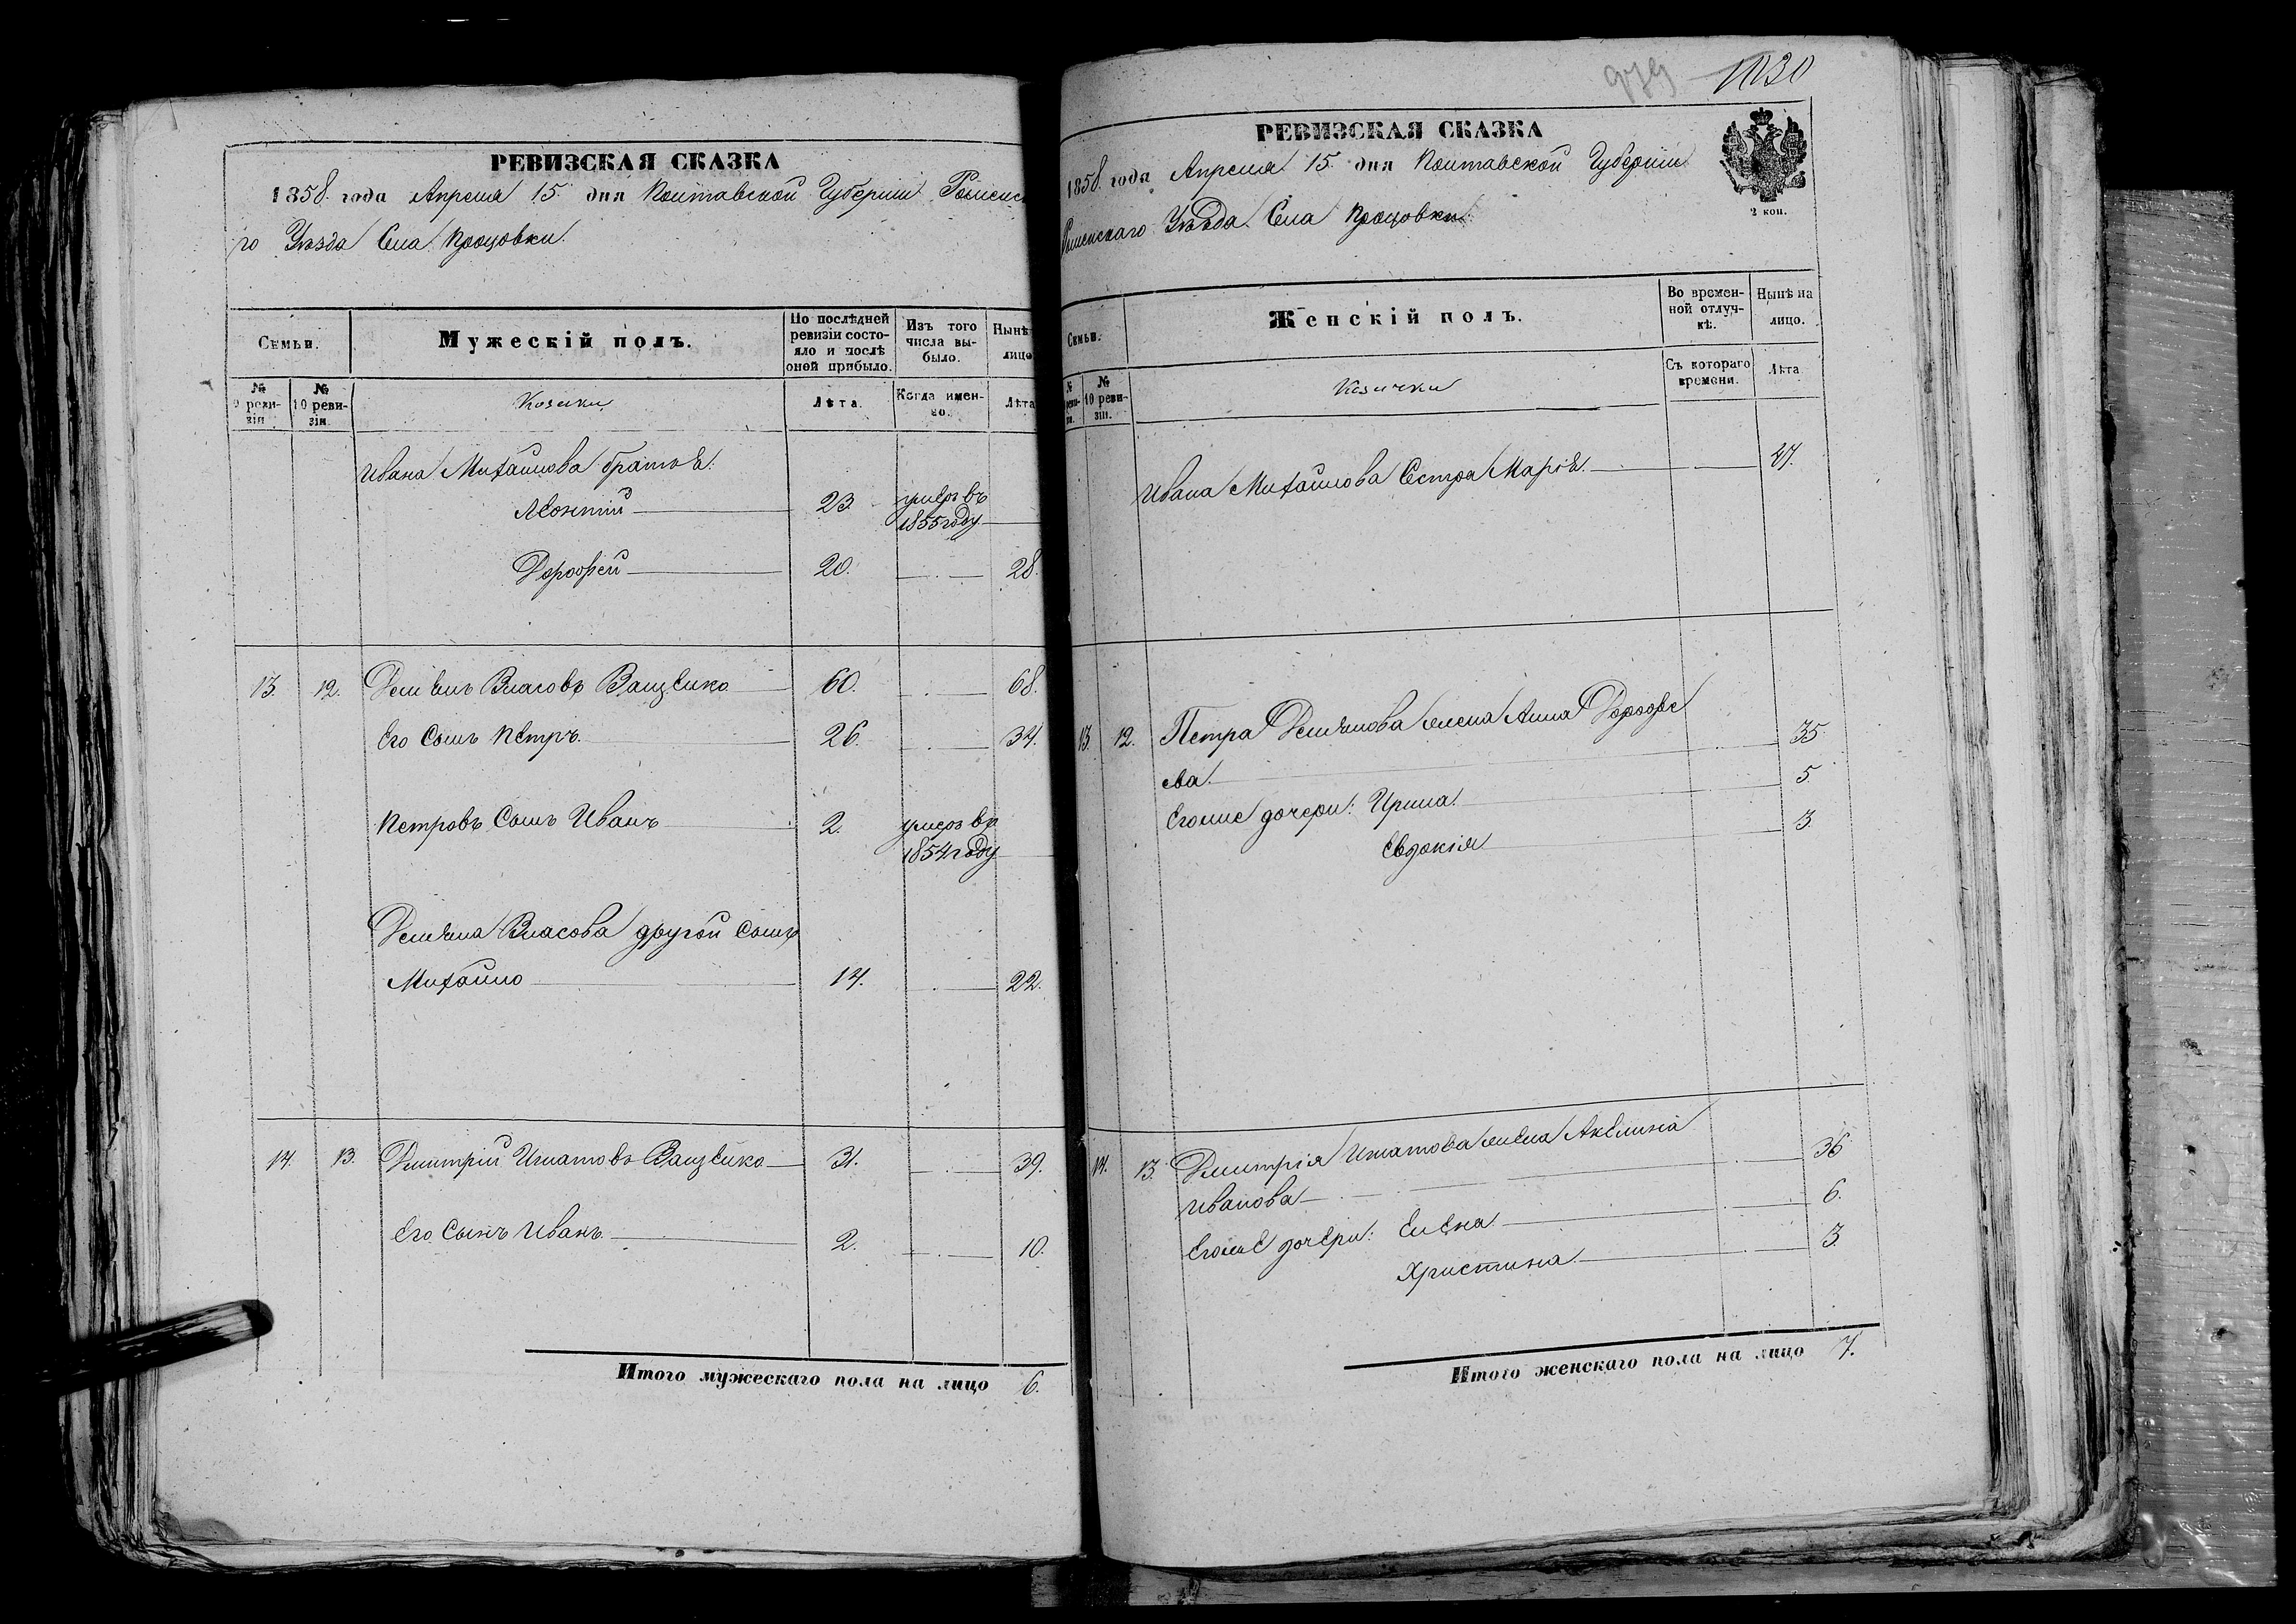 РЕВИЗСКАЯ СКАЗКА
1858. года Апреля 15 дня Полтавской Губерніи Роменска
го Уѣзда Села Процовки.
Семьи.
Мужескій полъ.
По послѣдней
ревизіи состо-
яло и послѣ
оной прибыло.
Изъ того
числа вы-
было.
Нынѣ
лицо
№
9 реви-
зіи
№
10 реви-
зіи.
Козаки
Лѣта.
Когда имен-
но.
Лѣта
Ивана Михайлова братьѣ:
Леонтій 23 умеръ въ
1855 году
Дорофей 20. 28.
13. 12. Демѣянъ Власовъ Ващенко 60. 68.
Его Сынъ Петръ. 26. 34.
Петровъ Сынъ Иванъ 2. умеръ въ
1854 году
Демѣяна Власова другой сынъ
Михайло 14. 22.
14. 13. Дмитрій Игнатовъ Ващенко 31. 39.
Его Сынъ Иванъ 2. 10.
Итого мужескаго пола на лицо 6.
979 1030
РЕВИЗСКАЯ СКАЗКА
1858. года Апреля 15. дня Полтавской Губерніи
Роменскаго Уѣзда Села Процовки
2 коп.
Семьи.
Женскій полъ.
Во времен-
ной отлуч-
кѣ.
Нынѣ на
лицо.
№
реви-
зіи.
№
10 реви-
зіи.
Козачки
Съ котораго
времени.
Лѣта
Ивана Михайлова Сестра Маріѣ. 27.
13. 12. Петра Демѣянова жена Анна Дорофе
ева. 35
Егоже дочери: Ирина. 5
Евдокія 3
14. 13. Дмитрія Игнатова жена Акелина
Иванова 36
Егоже дочери: Елена 6.
Христина. 3
Итого женскаго пола на лицо 7.